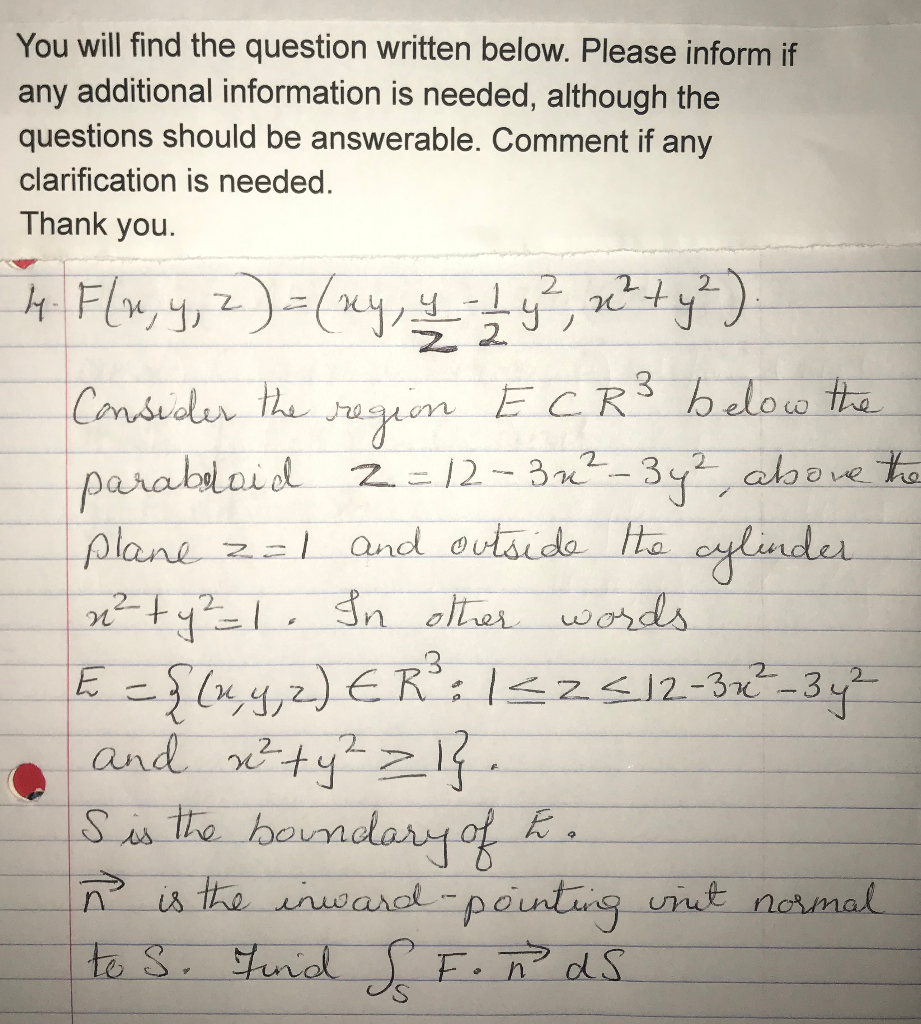 You will find the question written below. Please inform if
any additional information is needed, although the
questions should be answerable. Comment if any
clarification is needed.
Thank you.
4. F(x,y,z)=(xy, y/z - 1/2 y², x²+y²).
Consider the region E ⊂ R³ below the
paraboloid z = 12-3x²-3y², above the
plane z=1 and outside the cylinder
x²+y²=1. In other words
E = {(x,y,z) ∈ R³: 1≤z≤12-3x²-3y²
and x²+y² ≥ 1}.
S is the boundary of E.
n⃗ is the inward-pointing unit normal
to S. Find ∫_S F. n⃗ dS